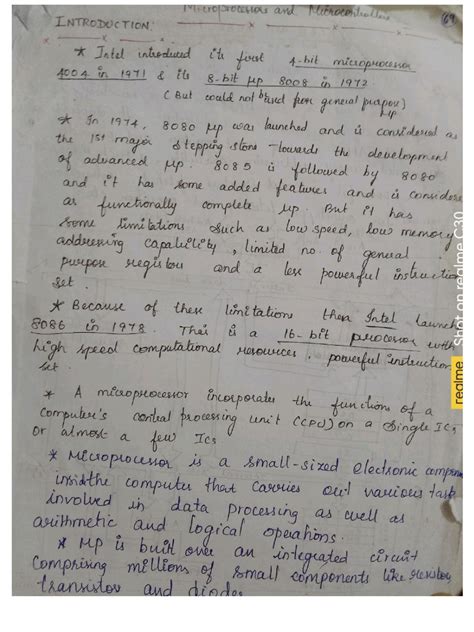 Microprocessors and Microcontrollers
69
INTRODUCTION:
* Intel introduced its first 4-bit microprocessor
4004 in 1971 & its 8-bit μp 8008 in 1972
(But could not b used from general purpose)
μp
* In 1974, 8080 μp was launched and is considered as
the 1st major stepping stone towards the development
of advanced μp. 8085 is followed by 8080
and it has some added features and is considere
as functionally complete μp. But it has
some limitations such as low speed, low memory
addressing capability, limited no. of general
purpose registers and a less powerful instruction
set.
* Because of these limitations then Intel launch
8086 in 1978. This is a 16-bit processor with
high speed computational resources, powerful instruction
set.
* A microprocessor incorporates the functions of a
computer's central processing unit (CPU) on a single ICs
or almost a few ICs
* Microprocessor is a small-sized electronic
inside the computer that carries out various task
involved in data processing as well as
arithmetic and logical operations.
* MP is built over an integrated circuit
comprising millions of small components like resistor
transistor and diodes
realme Shot on realme C30